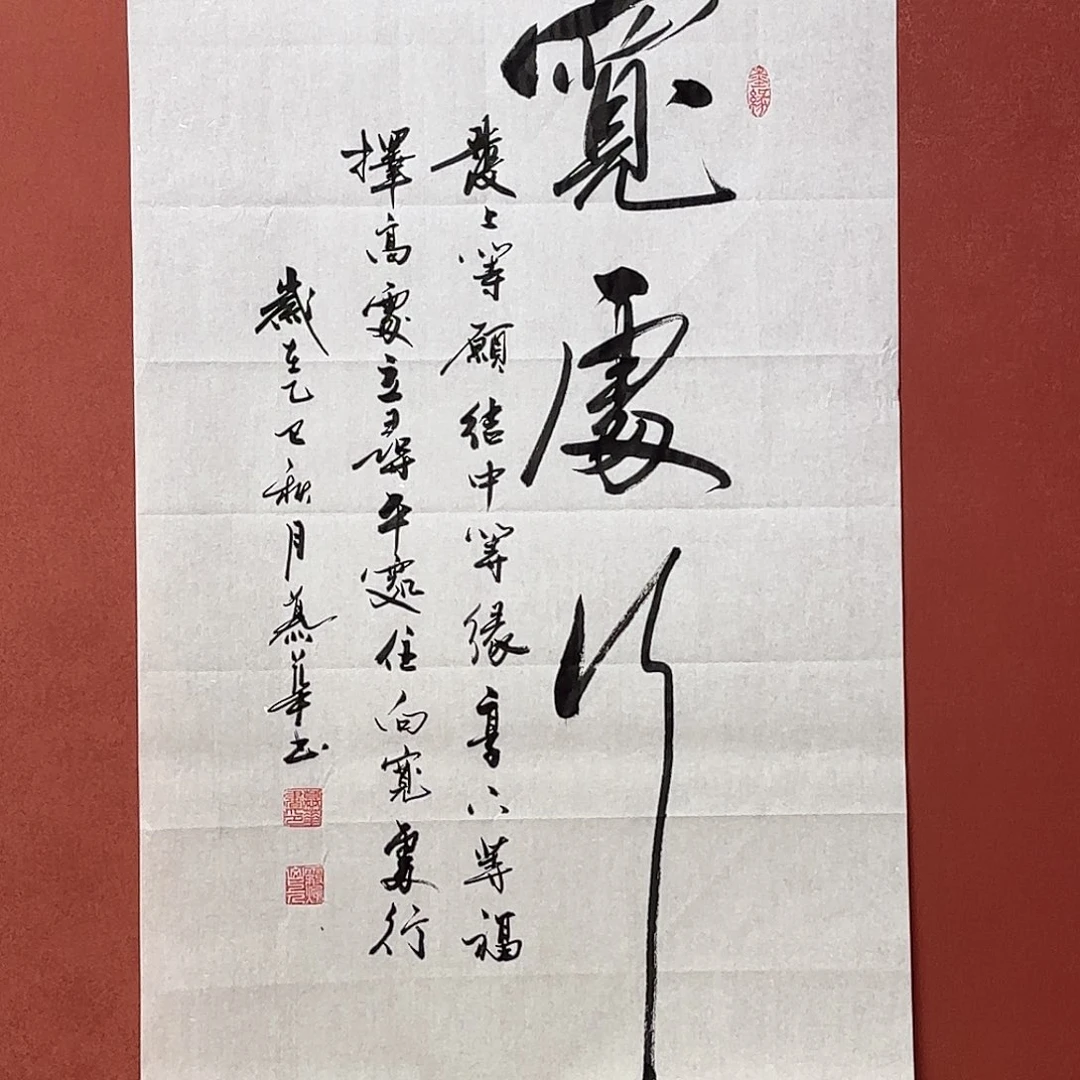 寬處行
發上等願結中等緣享下等福
擇高處立尋平處住向寬處行
歲在乙巳秋月燕華書